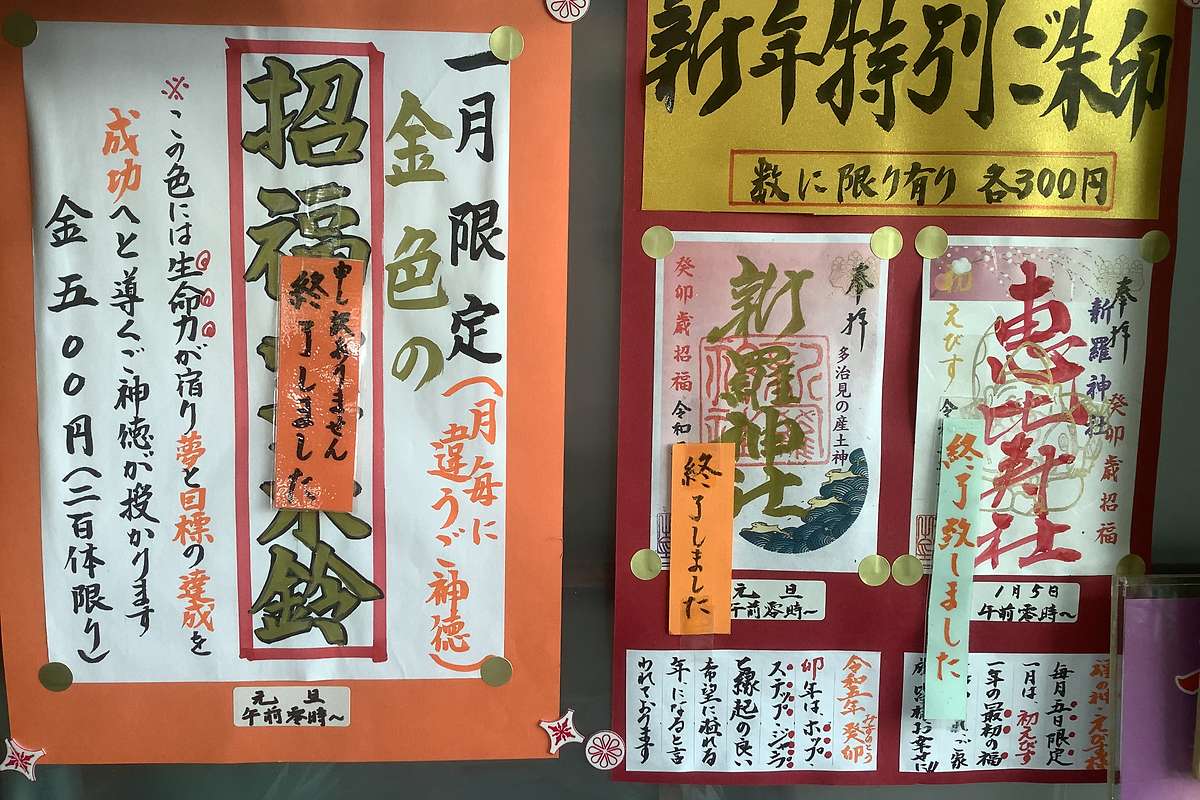 一月限定(月毎に違うご神徳)
金色の
招福
鈴
申し訳ありません
終了しました
※この色には生命力が宿り夢と目標の達成を
成功へと導くご神徳が授かります
金五〇〇円(二百体限り)
元旦
午前零時~
新年特別ご朱印
数に限り有り 各300円
奉拝
多治見の産土神
新羅神社
癸卯歳招福
令和
終了しました
元旦
午前零時~
奉拝
新羅神社
癸卯歳招福
恵比寿社
えびす
終了致しました
1月5日
午前零時~
令和五年 癸卯
みずのとう
卯年は、ホップ
ステップ・ジャンプ
と縁起の良い
希望に溢れる
年になると言
われております
毎月五日限定
一月は、初えびす
一年の最初の福